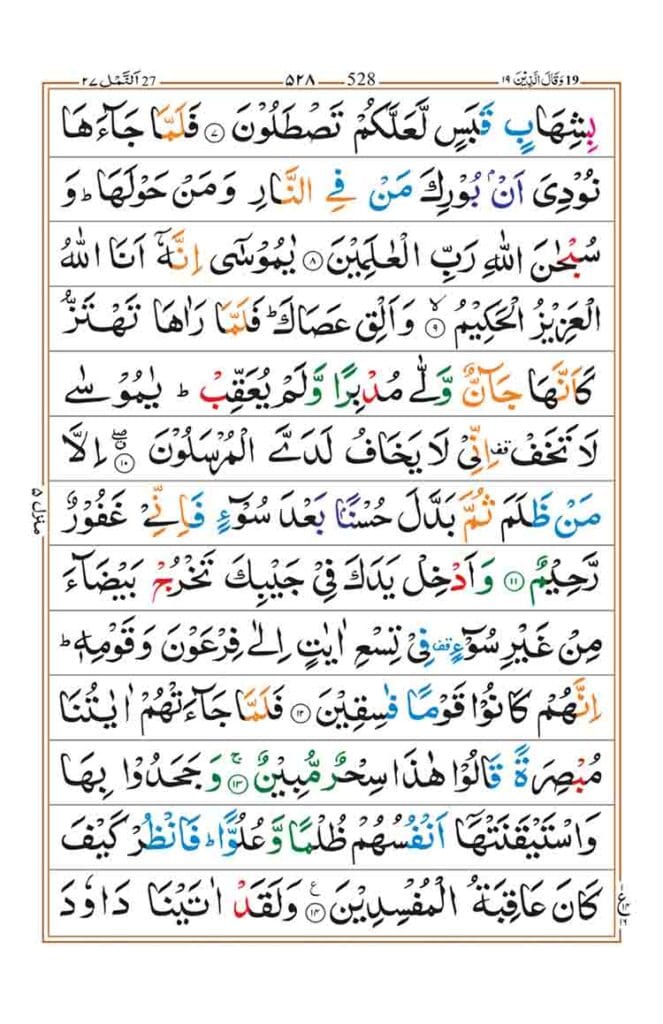 19 وَقَالَ الَّذِيْنَ ١٩ 528 ٥٢٨ 27 اَلنَّمْل ٢٧
بِشِهَابٍ قَبَسٍ لَّعَلَّكُمْ تَصْطَلُوْنَ ۝٧ فَلَمَّا جَآءَهَا
نُوْدِىَ اَنْۢ بُوْرِكَ مَنْ فِى النَّارِ وَمَنْ حَوْلَهَا ؕ وَ
سُبْحٰنَ اللّٰهِ رَبِّ الْعٰلَمِيْنَ ۝٨ يٰمُوْسٰٓى اِنَّهٗۤ اَنَا اللّٰهُ
الْعَزِيْزُ الْحَكِيْمُ ۙ۝٩ وَاَلْقِ عَصَاكَ ؕ فَلَمَّا رَاٰهَا تَهْتَزُّ
كَاَنَّهَا جَآنٌّ وَّلّٰى مُدْبِرًا وَّلَمْ يُعَقِّبْ ؕ يٰمُوْسٰى
لَا تَخَفْ قف اِنِّىْ لَا يَخَافُ لَدَىَّ الْمُرْسَلُوْنَ ۝١٠ۖ اِلَّا
مَنْ ظَلَمَ ثُمَّ بَدَّلَ حُسْنًۢا بَعْدَ سُوْٓءٍ فَاِنِّىْ غَفُوْرٌ
رَّحِيْمٌ ۝١١ وَاَدْخِلْ يَدَكَ فِىْ جَيْبِكَ تَخْرُجْ بَيْضَآءَ
مِنْ غَيْرِ سُوْٓءٍ قف فِىْ تِسْعِ اٰيٰتٍ اِلٰى فِرْعَوْنَ وَقَوْمِهٖ ؕ
اِنَّهُمْ كَانُوْا قَوْمًا فٰسِقِيْنَ ۝١٢ فَلَمَّا جَآءَتْهُمْ اٰيٰتُنَا
مُبْصِرَةً قَالُوْا هٰذَا سِحْرٌ مُّبِيْنٌ ۚ۝١٣ وَجَحَدُوْا بِهَا
وَاسْتَيْقَنَتْهَاۤ اَنْفُسُهُمْ ظُلْمًا وَّعُلُوًّا ؕ فَانْظُرْ كَيْفَ
كَانَ عَاقِبَةُ الْمُفْسِدِيْنَ ۝١٤ع وَلَقَدْ اٰتَيْنَا دَاوٗدَ
منزل ٥